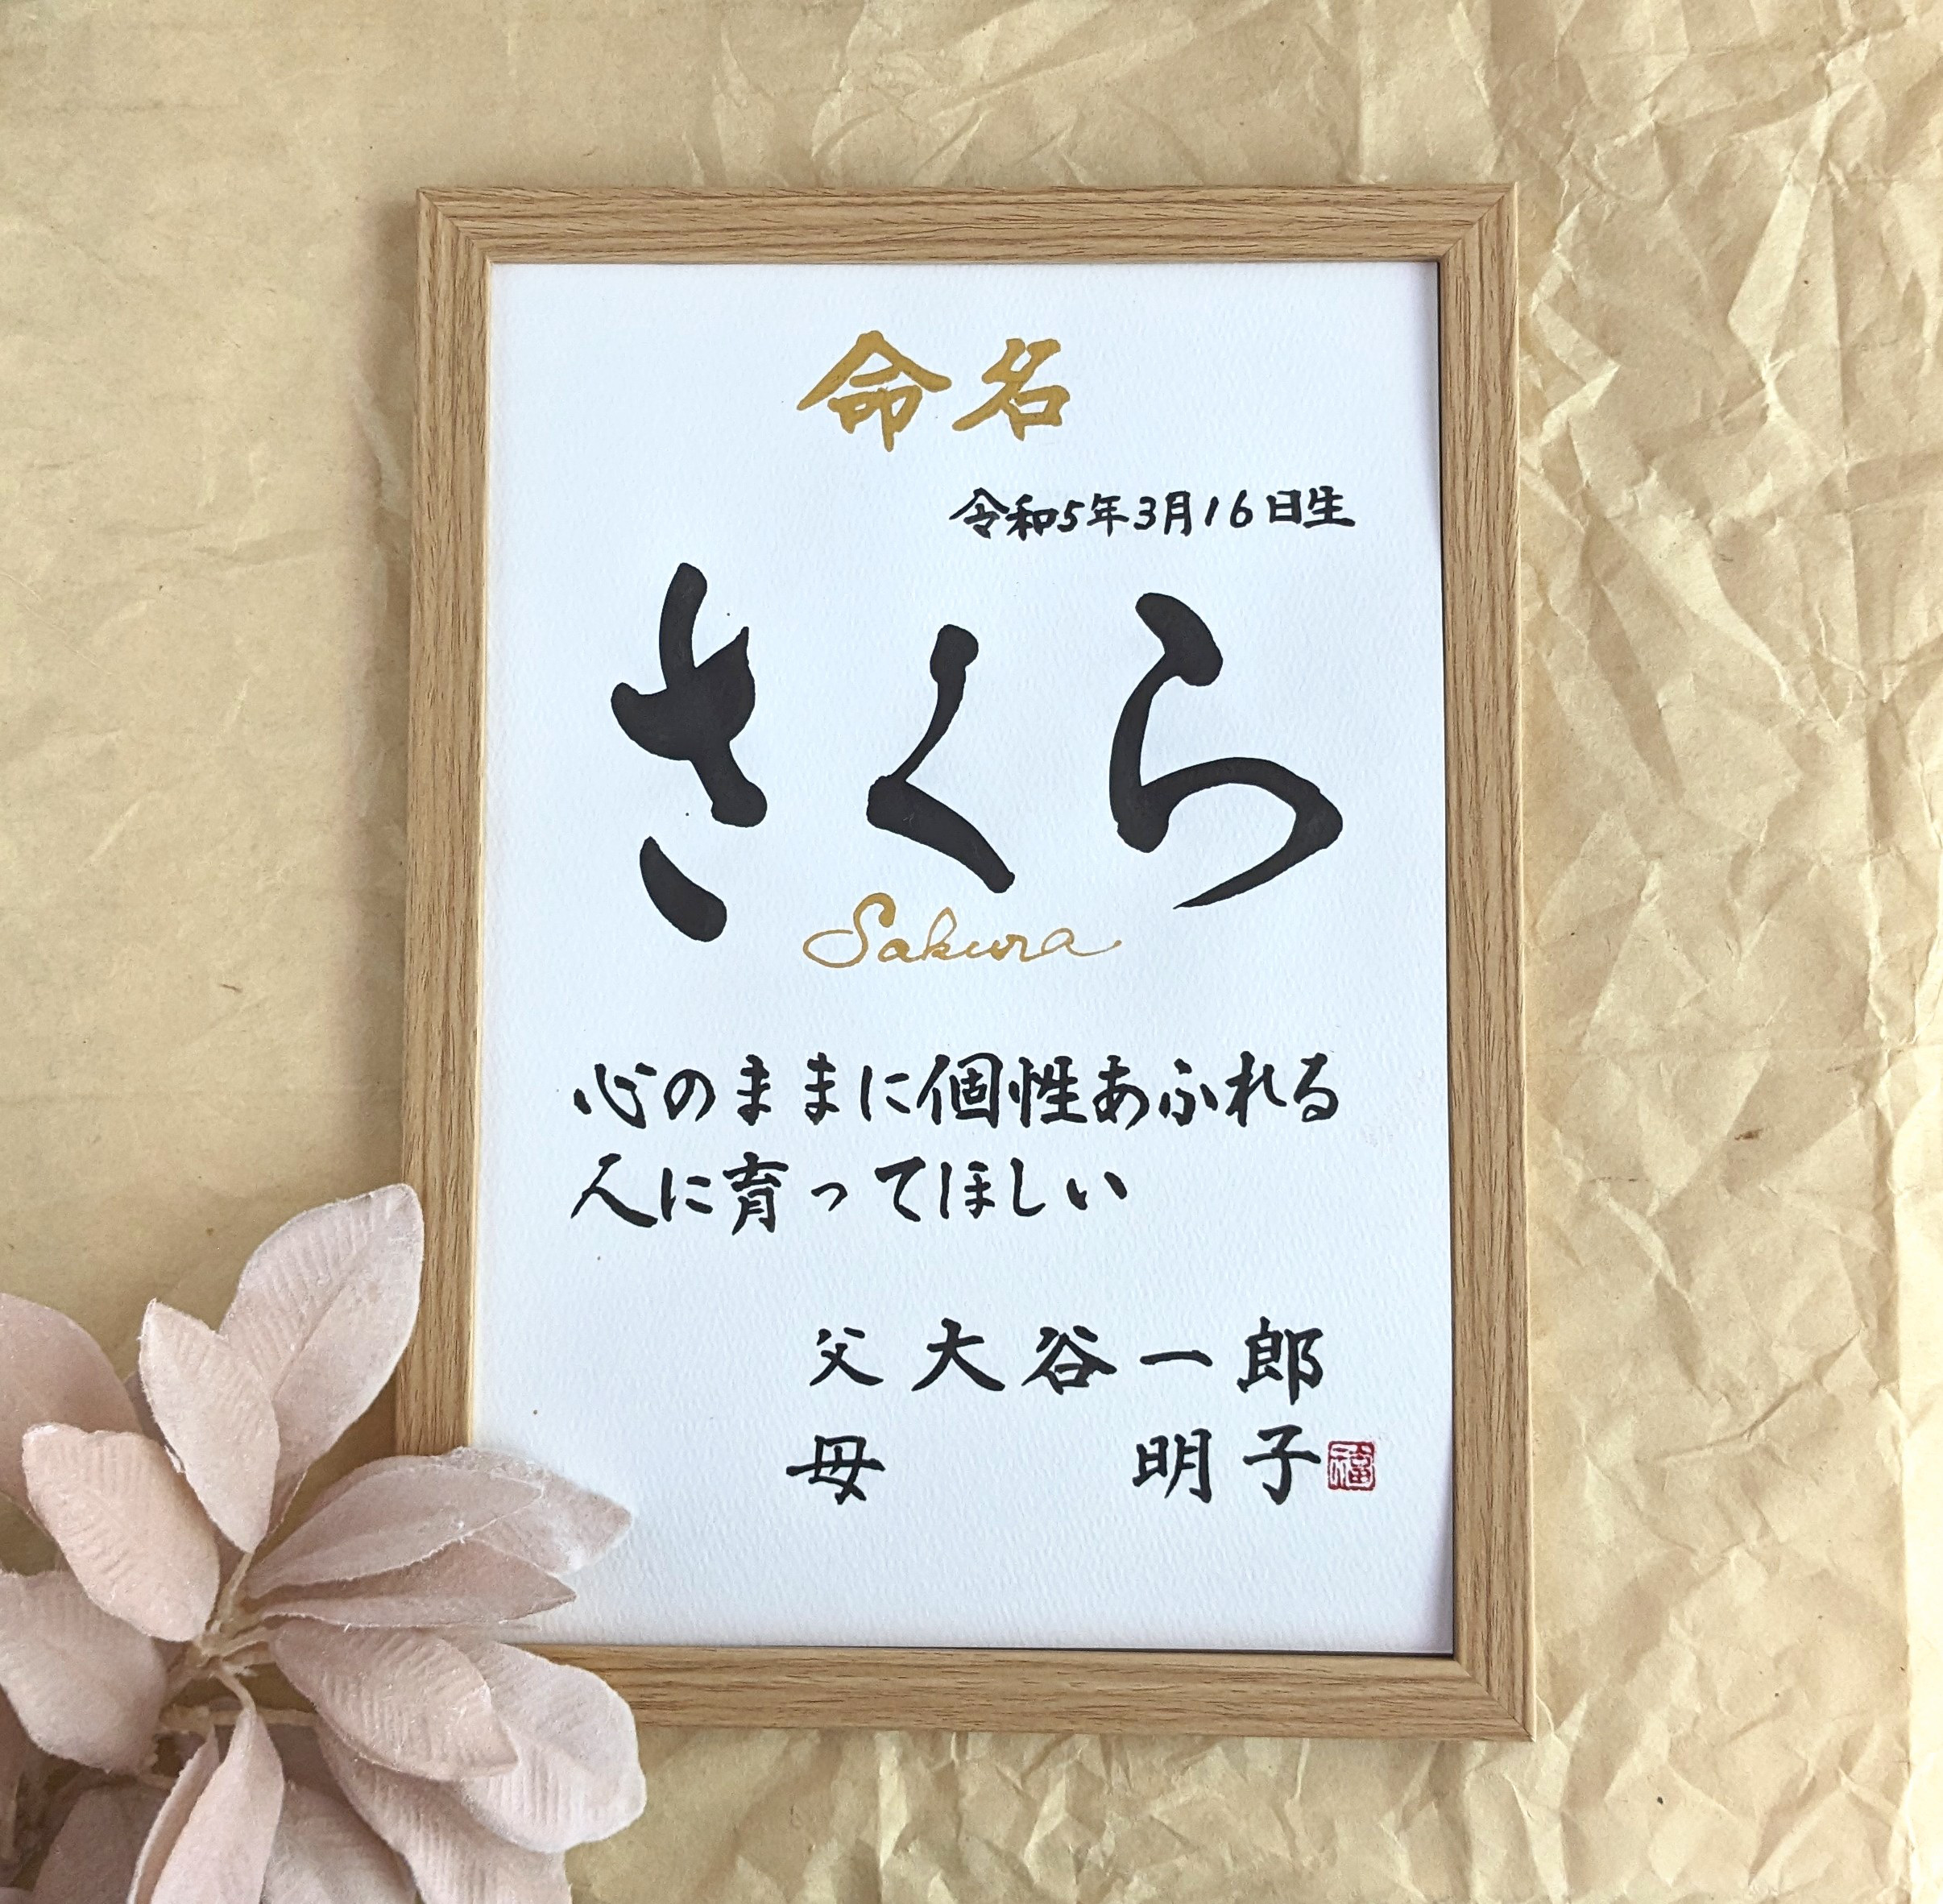 命名
令和5年3月16日生
さくら
Sakura
心のままに個性あふれる
人に育ってほしい
父 大谷一郎
母 明子
福